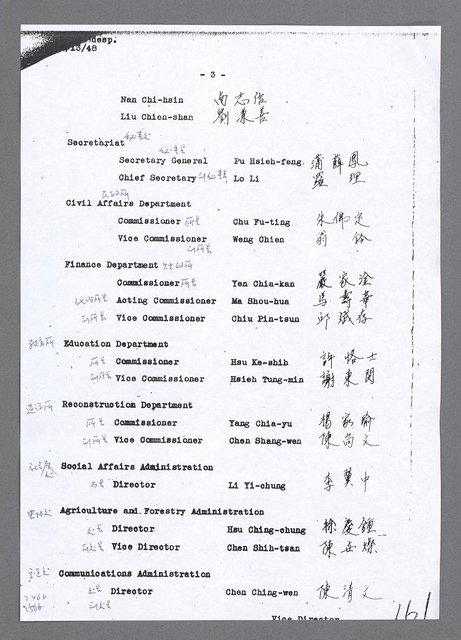 desp.
/13/48
- 3 -
Nan Chi-hsin 南志信
Liu Chien-shan 劉兼善
Secretariat 秘書處
Secretary General Pu Hsieh-feng 浦薛鳳
Chief Secretary Lo Li 羅理
民政所
Civil Affairs Department
Commissioner Chu Fu-ting 朱佛定
Vice Commissioner Weng Chien 翁鈐
Finance Department
Commissioner Yen Chia-kan 嚴家淦
Acting Commissioner Ma Shou-hua 馬壽華
Vice Commissioner Chiu Pin-tsun 邱斌存
Education Department
Commissioner Hsu Ke-shih 許恪士
Vice Commissioner Hsieh Tung-min 謝東閔
Reconstruction Department
Commissioner Yang Chia-yu 楊家瑜
Vice Commissioner Chen Shang-wen 陳尚文
Social Affairs Administration
Director Li Yi-chung 李翼中
Agriculture and Forestry Administration
Director Hsu Ching-chung 徐慶鐘
Vice Director Chen Shih-tsan 陳世燦
Communications Administration
Director Chen Ching-wen 陳清文
Vice Director
161